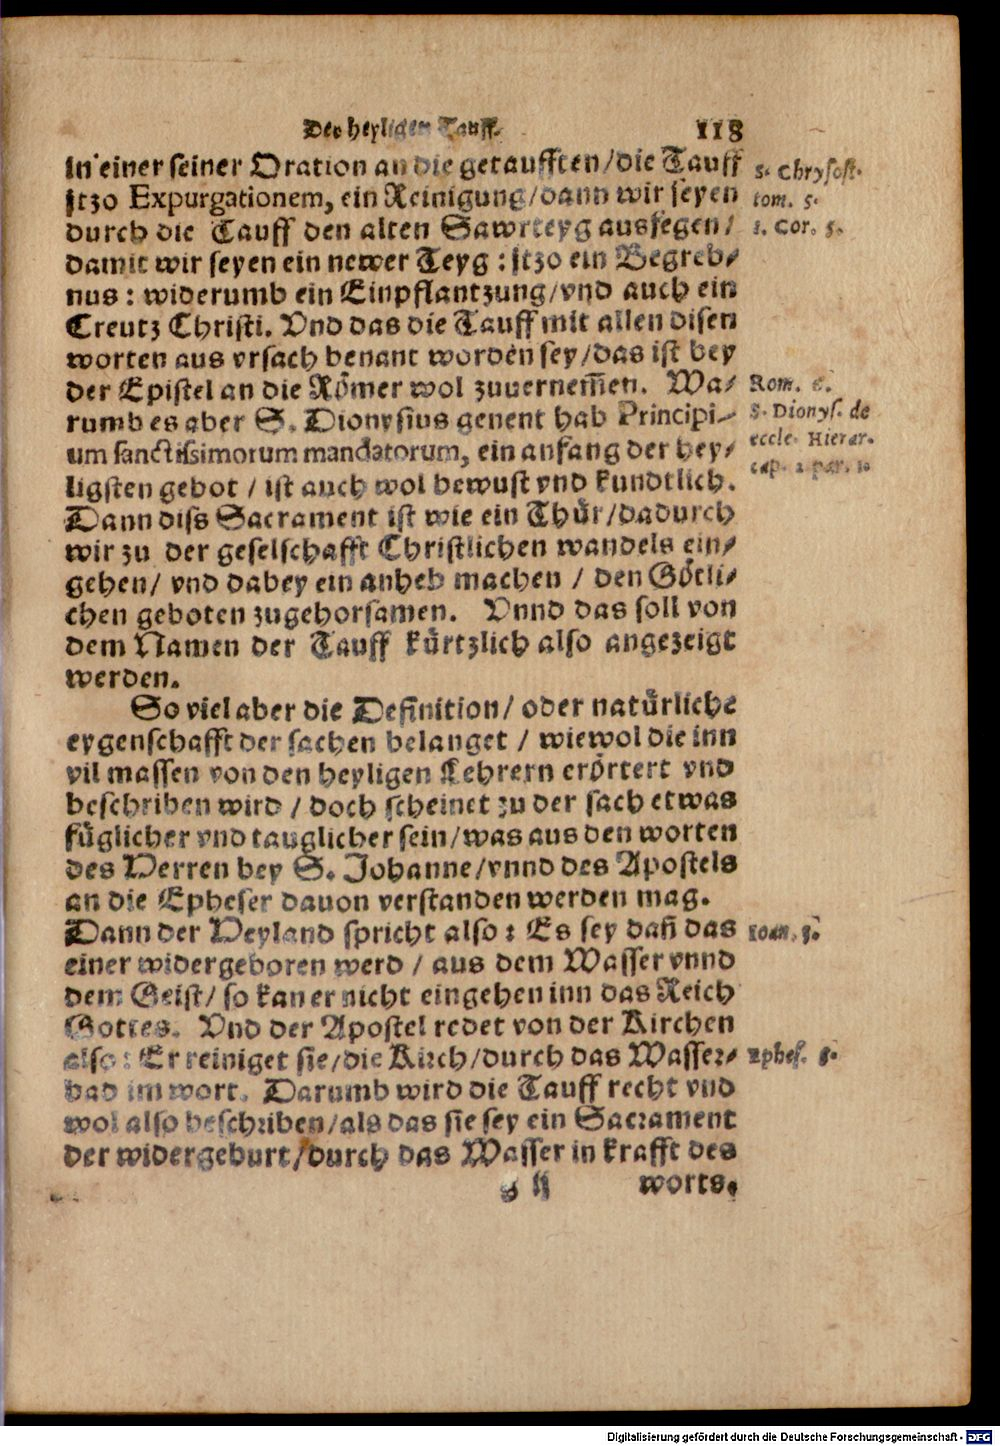 Der heyligen Tauff. 118
in einer seiner Oration an die getaufften/die Tauff
jtzo Expurgationem, ein Reinigung/dann wir seyen
durch die Tauff den alten Sawrteyg ausfegen/
damit wir seyen ein newer Teyg : jtzo ein Begreb⸗
nus : widerumb ein Einpflantzung/vnd auch ein
Creutz Christi. Vnd das die Tauff mit allen disen
worten aus vrsach benant worden sey/das ist bey
der Epistel an die Römer wol zuuernem̃en. Wa⸗
rumb es aber S. Dionysius genent hab Principi⸗
um sanctissimorum mandatorum, ein anfang der hey⸗
ligsten gebot / ist auch wol bewust vnd kundtlich.
Dann diss Sacrament ist wie ein Thür/dadurch
wir zu der geselschafft Christlichen wandels ein⸗
gehen/ vnd dabey ein anheb machen / den Götli⸗
chen geboten zugehorsamen. Vnnd das soll von
dem Namen der Tauff kürtzlich also angezeigt
werden.
So viel aber die Definition/ oder natürliche
eygenschafft der sachen belanget / wiewol die inn
vil massen von den heyligen Lehrern erörtert vnd
beschriben wird / doch scheinet zu der sach etwas
füglicher vnd tauglicher sein/was aus den worten
des Herren bey S. Johanne/vnnd des Apostels
an die Epheser dauon verstanden werden mag.
Dann der Heyland spricht also : Es sey dañ das
einer widergeboren werd / aus dem Wasser vnnd
dem Geist/ so kan er nicht eingehen inn das Reich
Gottes. Vnd der Apostel redet von der Kirchen
also : Er reiniget sie/die Kirch/durch das Wasser⸗
bad im wort. Darumb wird die Tauff recht vnd
wol also beschriben/als das sie sey ein Sacrament
der widergeburt/durch das Wasser in krafft des
worts.
S. Chrysost.
tom. 5.
1. Cor. 5.
Rom. 6.
S. Dionys. de
eccle. Hierar.
cap. 2 par. 1.
Ioan. 3.
Ephes. 5.
Digitalisierung gefördert durch die Deutsche Forschungsgemeinschaft - DFG